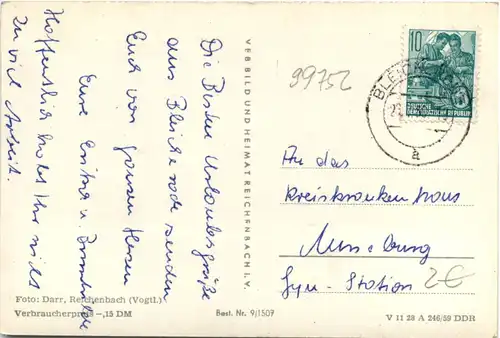 Die Besten Urlaubsgrüße
aus Bleicherode senden
Euch von ganzem Herzen
Eure Erika u. Brunhilde
Hoffentlich habt Ihr nicht
zu viel Arbeit.
Foto: Darr, Reichenbach (Vogtl.)
Verbraucherpreis -,15 DM
Best. Nr. 9/1507
VEB BILD UND HEIMAT REICHENBACH I. V.
99752
10
DEUTSCHE
DEMOKRATISCHE REPUBLIK
a
An das
Kreiskrankenhaus
Gyn.-Station
2€
V 11 28 A 246/59 DDR